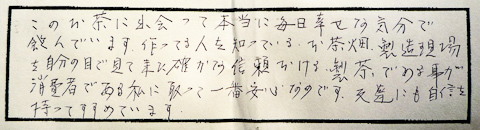 このお茶に出会って本当に毎日幸せな気分で
飲んでいます。作ってる人を知っている。お茶畑、製造現場
を自分の目で見て来た確かな信頼おける製茶である事が
消費者である私に取って一番安心なのです。友達にも自信を
持ってすすめています。